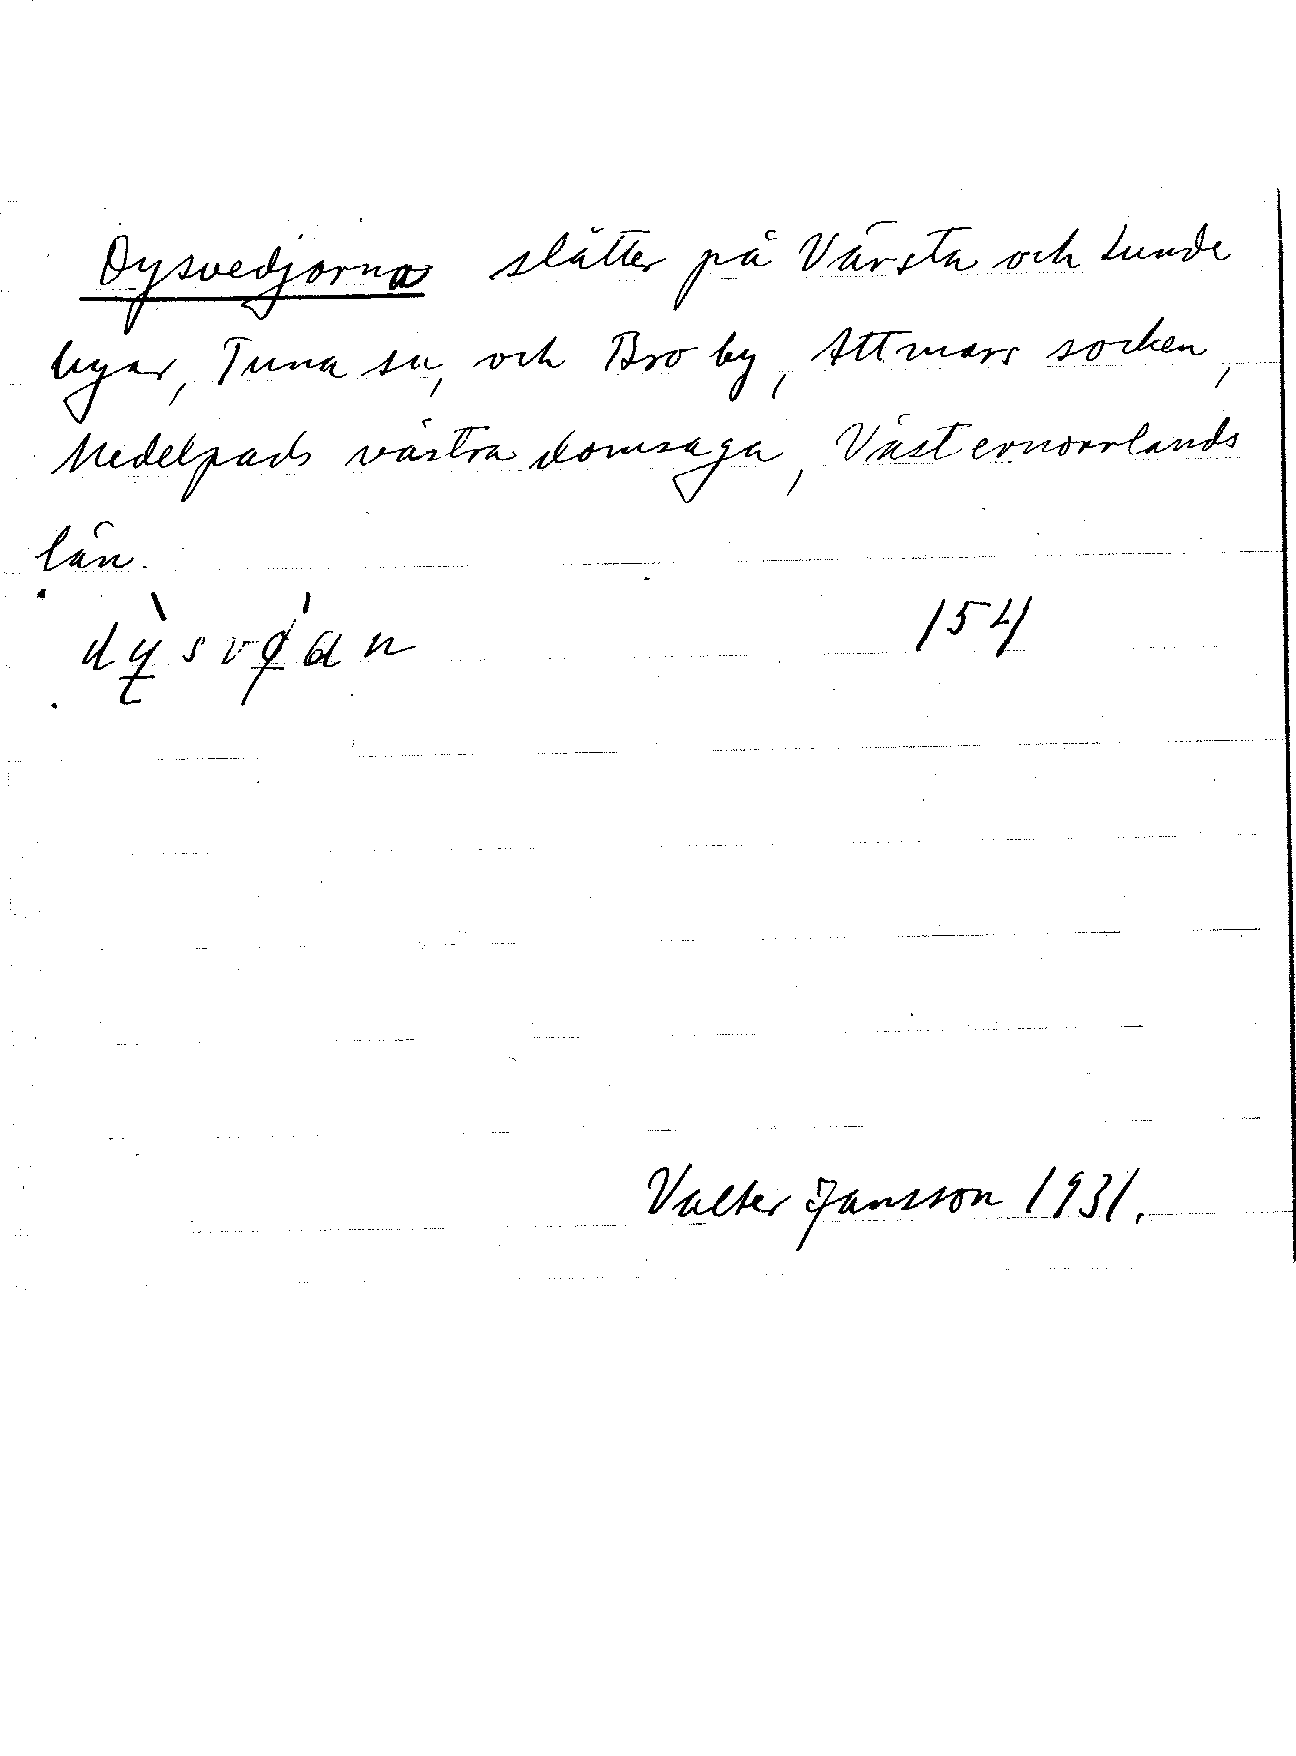 Dysvedjorna slåtter på Värsta och Lunde
byar, Tuna sn, och Bro by, Attmars socken,
Medelpads västra domsaga, Västernorrlands
län.
154
Valter Jansson 1931.